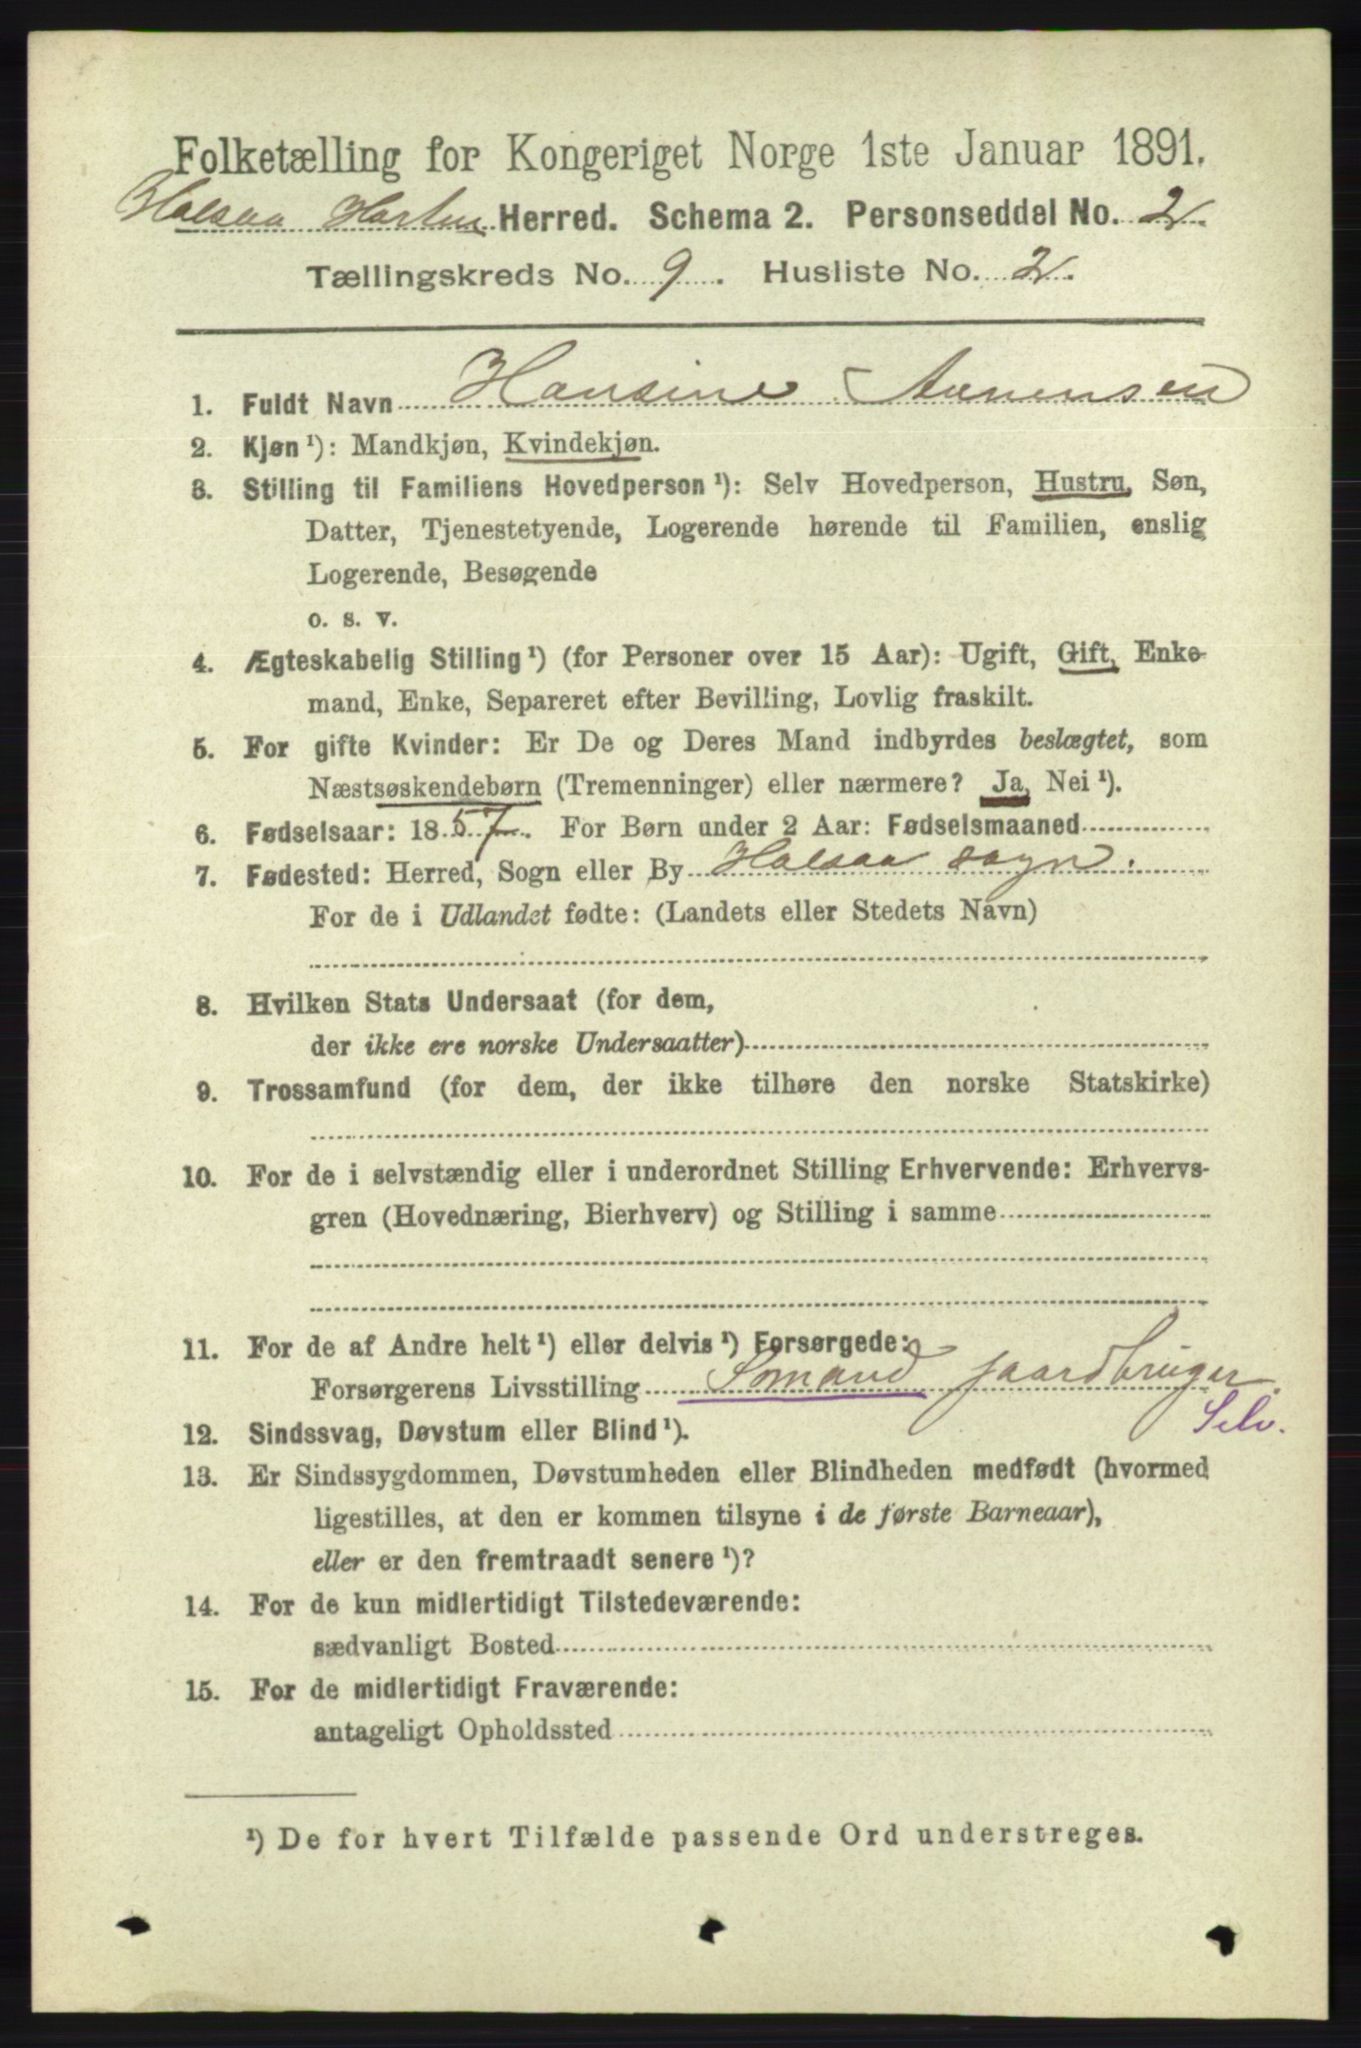 Folketælling for Kongeriget Norge 1ste Januar 1891.
Halsaa Herred. Schema 2. Personseddel No. 2.
Tællingskreds No. 9. Husliste No. 2.
1. Fuldt Navn Hansine Aanensen
2. Kjøn ¹): Mandkjøn, Kvindekjøn.
3. Stilling til Familiens Hovedperson ¹): Selv Hovedperson, Hustru, Søn,
Datter, Tjenestetyende, Logerende hørende til Familien, enslig
Logerende, Besøgende
o. s. v.
4. Ægteskabelig Stilling ¹) (for Personer over 15 Aar): Ugift, Gift, Enke-
mand, Enke, Separeret efter Bevilling, Lovlig fraskilt.
5. For gifte Kvinder: Er De og Deres Mand indbyrdes beslægtet, som
Næstsøskendebørn (Tremenninger) eller nærmere? Ja, Nei ¹).
6. Fødselsaar: 1857. For Børn under 2 Aar: Fødselsmaaned
7. Fødested: Herred, Sogn eller By Halsaa sogn.
For de i Udlandet fødte: (Landets eller Stedets Navn)
8. Hvilken Stats Undersaat (for dem,
der ikke ere norske Undersaatter)
9. Trossamfund (for dem, der ikke tilhøre den norske Statskirke)
10. For de i selvstændig eller i underordnet Stilling Erhvervende: Erhvervs-
gren (Hovednæring, Bierhverv) og Stilling i samme
11. For de af Andre helt ¹) eller delvis ¹) Forsørgede:
Forsørgerens Livsstilling Sømand gaardbruger
Selv.
12. Sindssvag, Døvstum eller Blind ¹).
13. Er Sindssygdommen, Døvstumheden eller Blindheden medfødt (hvormed
ligestilles, at den er kommen tilsyne i de første Barneaar),
eller er den fremtraadt senere ¹)?
14. For de kun midlertidigt Tilstedeværende:
sædvanligt Bosted
15. For de midlertidigt Fraværende:
antageligt Opholdssted
¹) De for hvert Tilfælde passende Ord understreges.